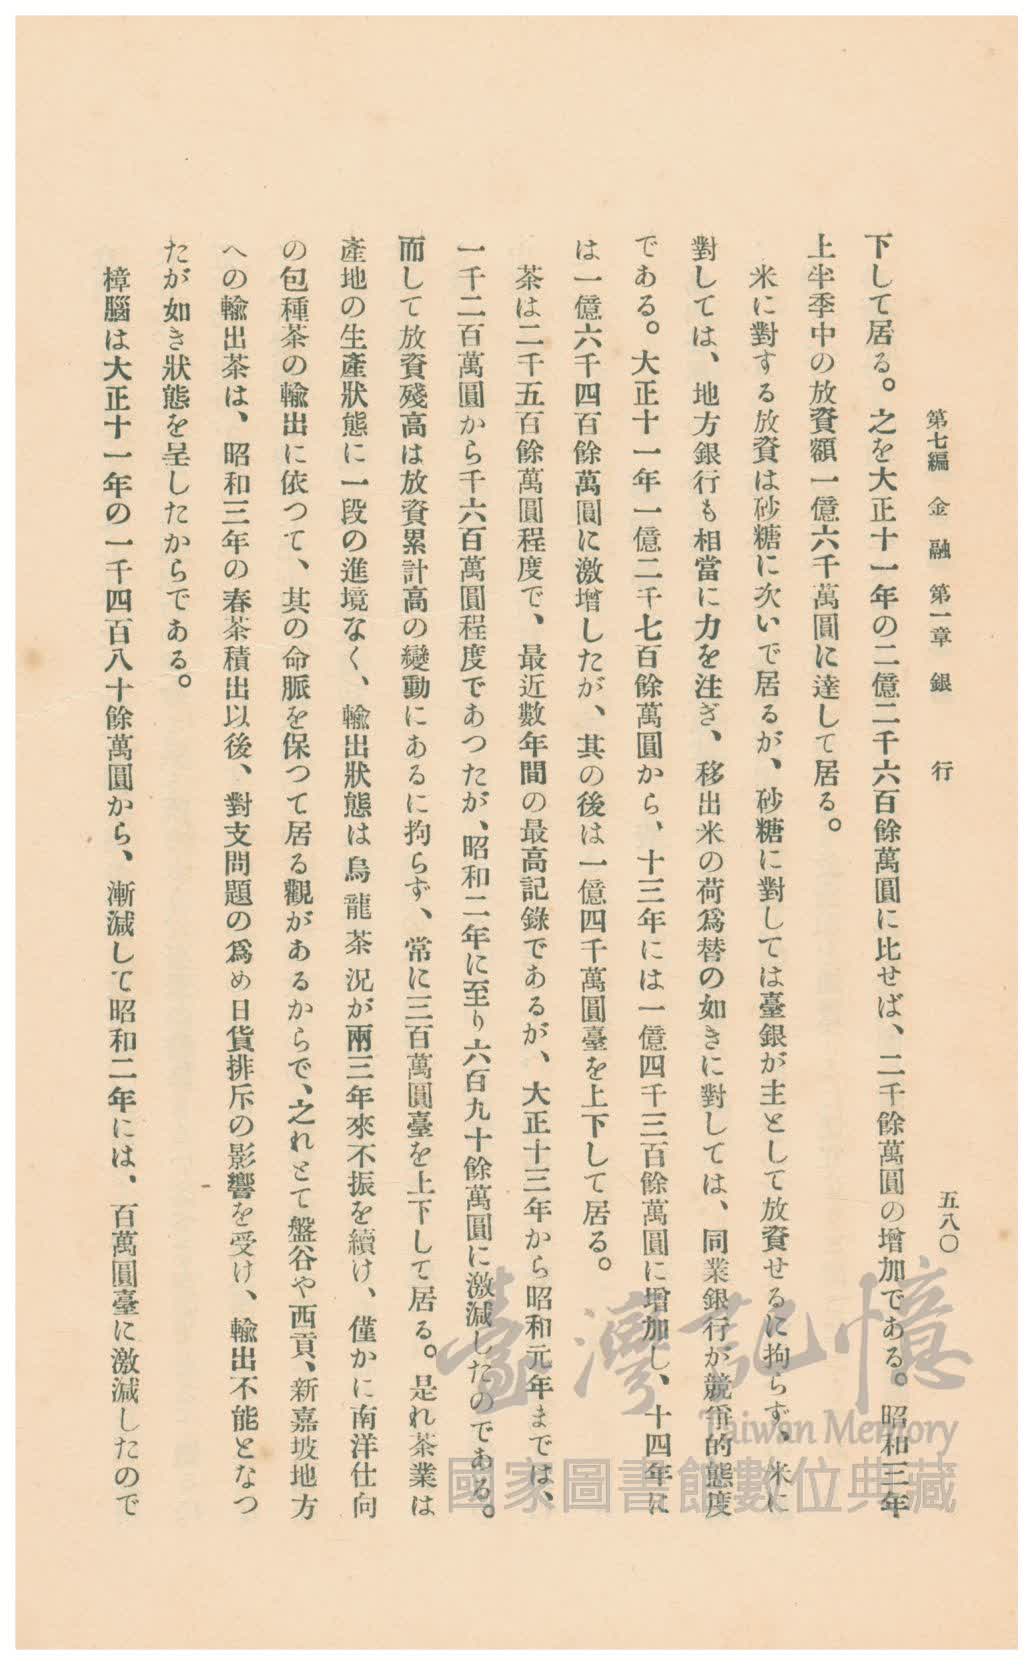 第七編　金融　第一章　銀行
五八〇
下して居る。之を大正十一年の二億二千六百餘萬圓に比せば、二千餘萬圓の增加である。昭和三年
上半季中の放資額一億六千萬圓に達して居る。
米に對する放資は砂糖に次いで居るが、砂糖に對しては臺銀が主として放資せるに拘らず、米に
對しては、地方銀行も相當に力を注ぎ、移出米の荷爲替の如きに對しては、同業銀行が競爭的態度
である。大正十一年一億二千七百餘萬圓から、十三年には一億四千三百餘萬圓に增加し、十四年に
は一億六千四百餘萬圓に激增したが、其の後は一億四千萬圓臺を上下して居る。
茶は二千五百餘萬圓程度で、最近數年間の最高記錄であるが、大正十三年から昭和元年までは、
一千二百萬圓から千六百萬圓程度であつたが、昭和二年に至り六百九十餘萬圓に激減したのである。
而して放資殘高は放資累計高の變動にあるに拘らず、常に三百萬圓臺を上下して居る。是れ茶業は
產地の生產狀態に一段の進境なく、輸出狀態は烏龍茶況が兩三年來不振を續け、僅かに南洋仕向
の包種茶の輸出に依つて、其の命脈を保つて居る觀があるからで、之れとて盤谷や西貢、新嘉坡地方
への輸出茶は、昭和三年の春茶積出以後、對支問題の爲め日貨排斥の影響を受け、輸出不能となつ
たが如き狀態を呈したからである。
樟腦は大正十一年の一千四百八十餘萬圓から、漸減して昭和二年には、百萬圓臺に激減したので
臺灣記憶
Taiwan Memory
國家圖書館數位典藏